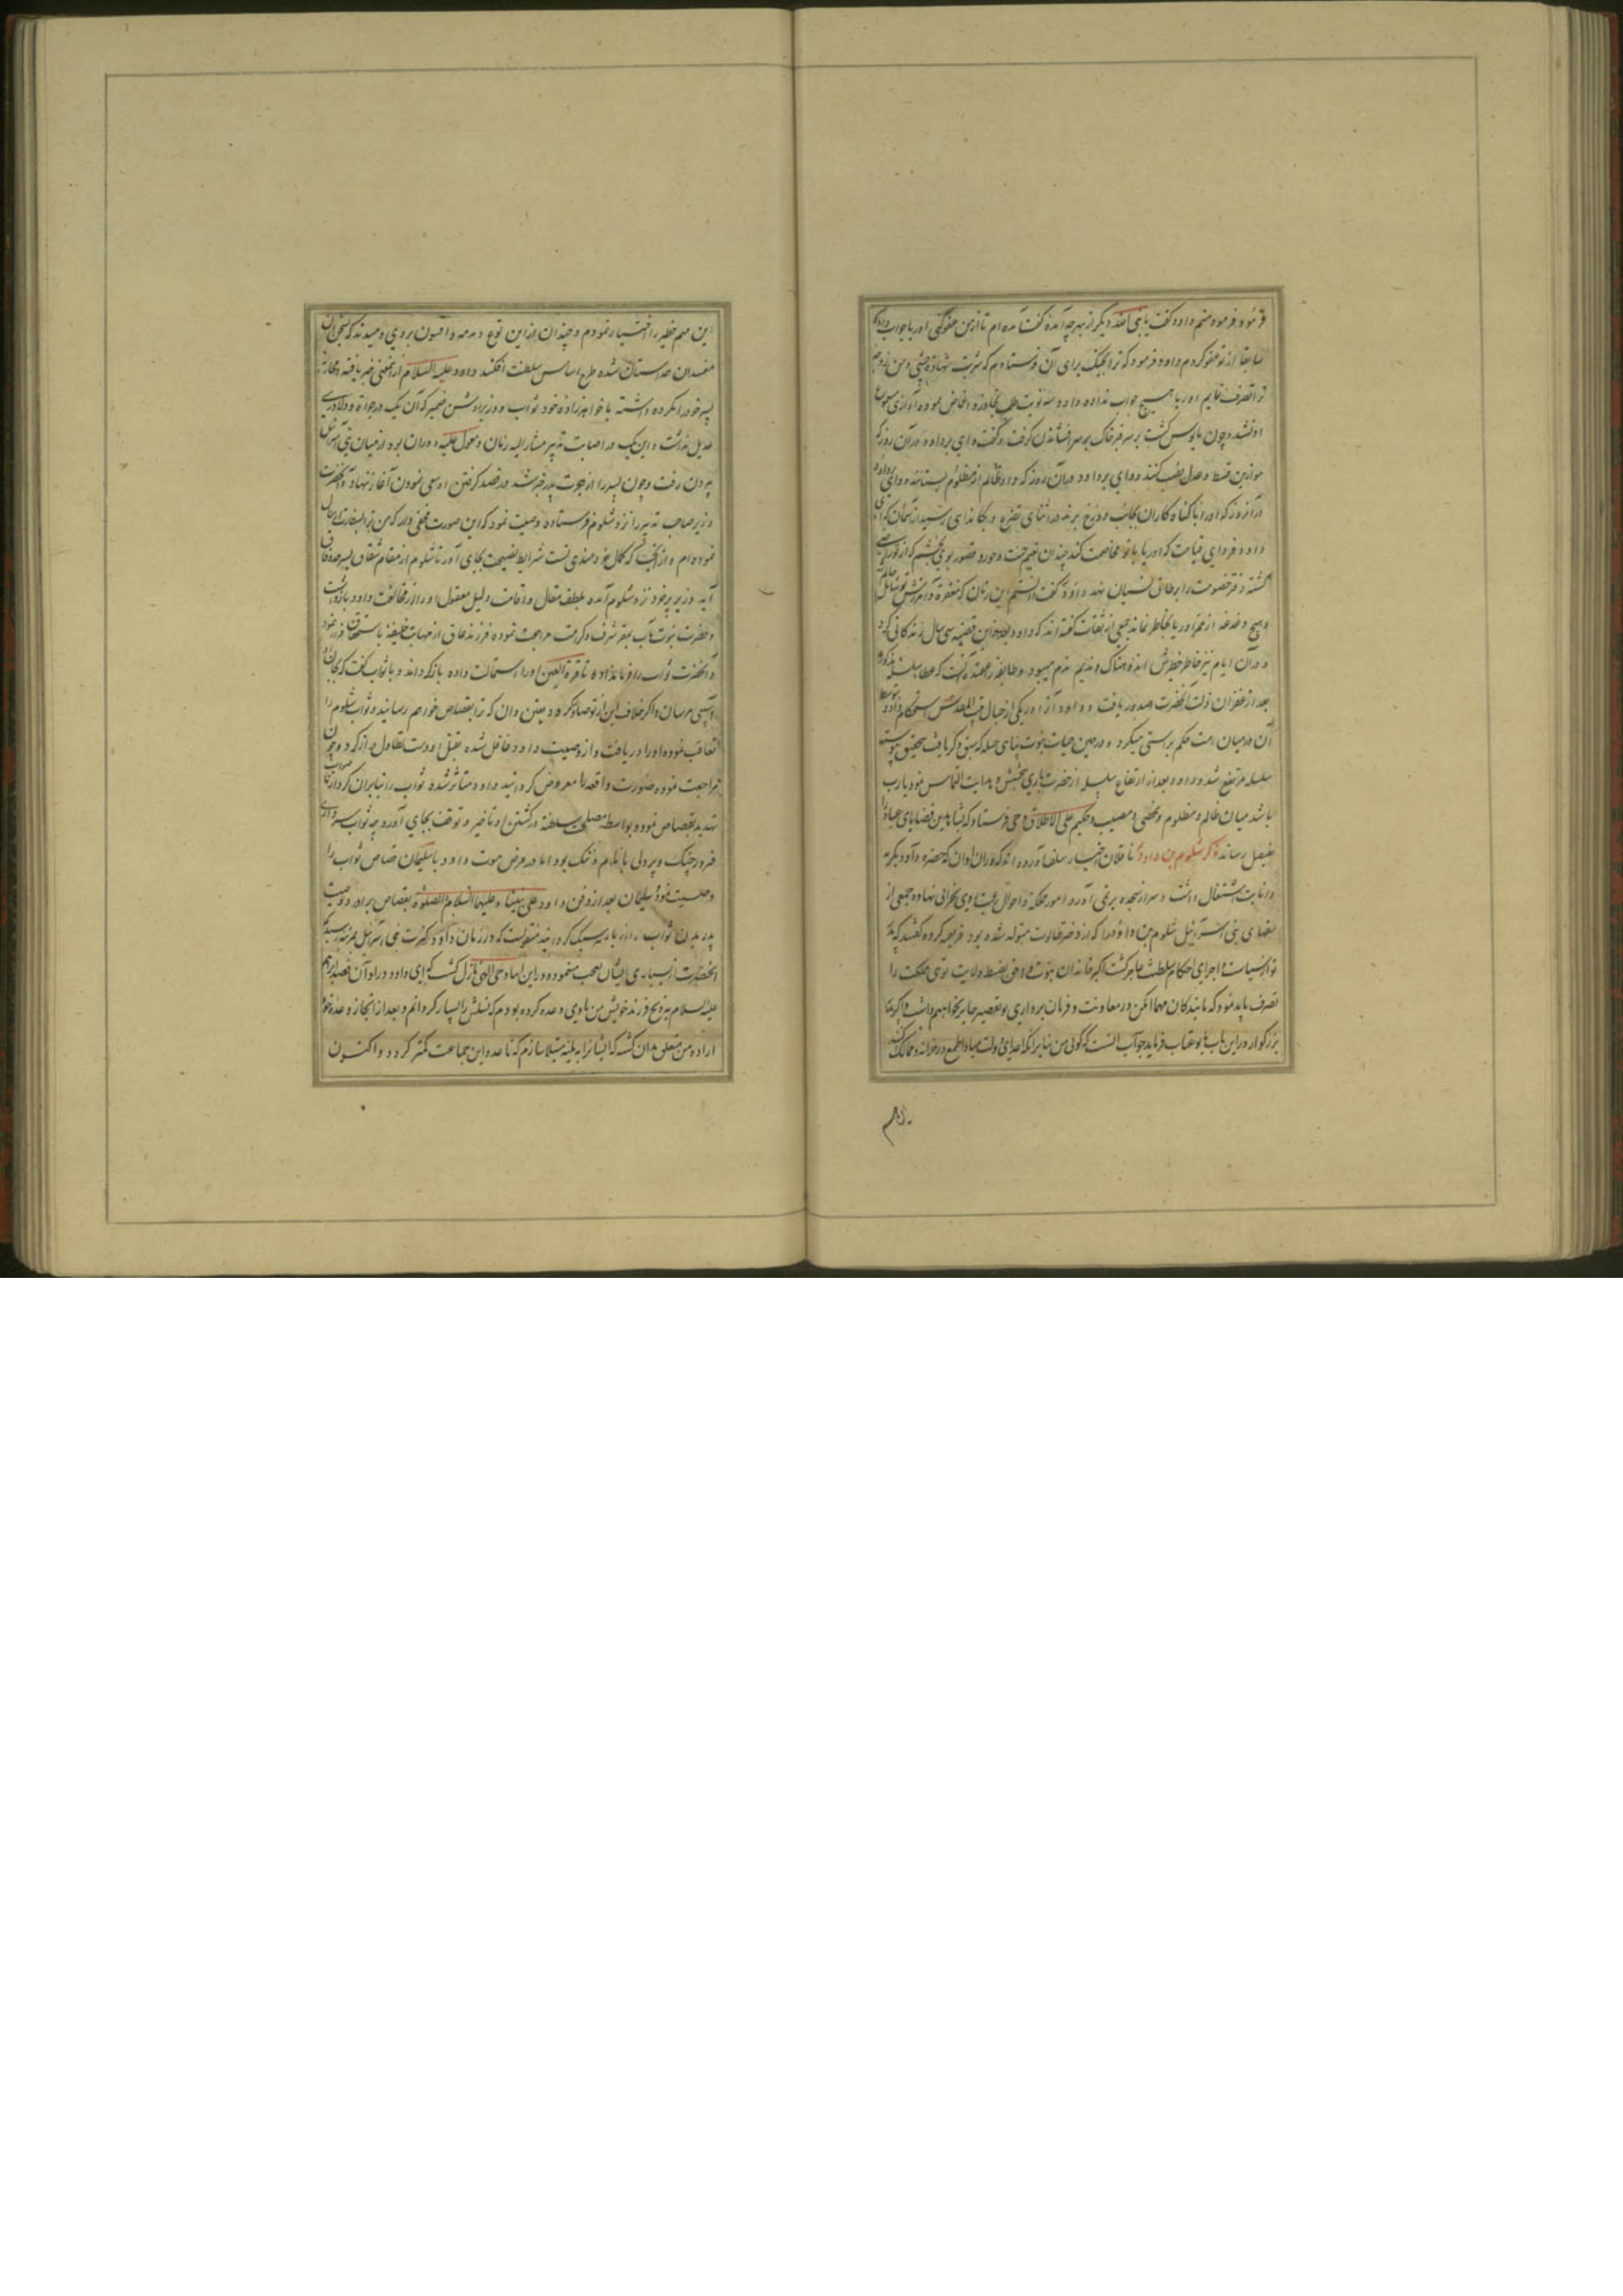 فرمود و فرمود منم داود گفت یا نبی الله دیگر از بهر چه آمدهٔ گفت آمده ام تا از من عفو کنی اوریا جواب داد که
سابقا از تو عفو کردم داود فرمود که ترا بجنگ برای آن فرستادم که شربت شهادة چشی و من زوجهٔ
ترا تصرف نمایم اوریا هیچ جواب نداده داود سه نوبت طلب تجاوز و اغماض نموده آوازی مسموع
او نشد و چون مایوس گشت بر سر قبر خاک بر سر افشاندن گرفت و گفت وای بر داود در آن روز که
موازین قسط و عدل نصب کنند و وای بر داود در آن روز که داد ظالم از مظلوم بستانند و وای بر داود
در آنروز که او را با گناه کاران بجانب دوزخ برند در اثنای تضرع و بکا ندای رسید از آسمان که ای
داود فردای قیامت که اوریا با تو مخاصمت کند چندان نعیم جنت و حور و قصور بوی بخشم که از تو راضی
گشته دفتر خصومت را بر طاق نسیان نهد داود گفت دانستم این زمان که مغفرة و آمرزش تو شامل حال
و هیچ دغدغه از مر اوریا بخاطر نماند جمعی از ثقات گفته اند که داود بعد از این قضیه سی سال زندگانی کرد
و در آن ایام نیز خاطر خطیرش اندوهناک و ندیم ندم میبود و طایفهٔ را عقیده آنست که عطا سلسله مذکوره
بعد از غفران ذلت آنحضرت صدور یافت و داود آنرا در یکی از جبال قریب المقدس استحکام داده
آن در میان امت حکم براستی میکرد و در حین حیات نبوت پناهی حیله که سبق ذکر یافت تحقیق پیوسته
سلسله مرتفع شد و داود بعد از ارتفاع سلسله از حضرت باری بخشش و هدایت التماس نمود یارب
باشد میان ظالم و مظلوم و مخطی و مصیب و حکیم علی الاطلاق وحی فرستاد که بشاهدین قضایای عباد را
بفیصل رساند ذکر شلوم بن داود ناقلان اخبار سلف آورده اند که در آن اوان که حضرة داود بگریه
و انابت اشتغال داشت و سر از سجده بر نمی آورد امور مملکة و احوال رعیت روی بخرابی نهاد و جمعی از
سفهای بنی اسرائیل شلوم بن داود را که از دختر طالوت متولد شده بود فریفته کرده گفتند که پدر
تو از سیاست و اجرای احکام سلطنت عاجز گشت اگر خاندان نبوت و احق بضبط ولایت توی مملکت را
تصرف باید نمود که ما بندگان مهما امکن در معاونت و فرمان برداری تو تقصیر جایز نخواهیم داشت و اگر پدر
بزرگوار در این باب با تو عتاب فرماید جواب آنست که گوئی من بنا بر آنکه اعدای دولت مبادا طمع در خزانه و ممالک کنند
این مهم خطیر را اختیار نمودم و چندان از این نوع دمدمه و افسون بر وی دمیدند که بسخنان
مفسدان همداستان شده طرح اساس سلطنت افکند داود علیه السلام از این معنی خبر یافته
پسر خود را مکروه داشته با خواهرزادهٔ خود ثواب و وزیر روشن ضمیر که آن یک در جرأت و دلاوری
عدیل نداشت و این یک در اصابت تدبیر مشار الیه زمان و معول علیه دوران بود از میان بنی اسرائیل
بیرون رفت و چون پسر را از خروج پدر خبر شد در قصد گرفتن او سعی نمودن آغاز نهاد و آنحضرت
وزیر صاحب تدبیر را نزد شلوم فرستاده وصیت نمود که این صورت مخفی دار که من ترا بسفارت ارسال
نموده ام و از آنجا که کمال خردمندی تست شرایط نصیحت بجای آور تا شلوم از مقام شقاق بسر حد وفاق
آید وزیر پیر خود نزد شلوم آمده بلطف مقال و اقامت دلیل معقول او را از مخالفت داود بازداشت
و حضرت نبوت مآب بمقر شرف و کرامت مراجعت نموده فرزند عاق از مهابت خلیفه باستحقاق فرار نمود
و آنحضرت ثواب را فرمانداده تا قرة العین او را استمالت داده بازگرداند و با ثواب گفت که بجان او
آسیبی مرسان و اگر خلاف این از تو صادر گردد یقین دان که ترا بقصاص خواهم رسانید و ثواب شلوم را
تعاقب نموده او را دریافت و از وصیت داود غافل شده بقتل او دست تطاول دراز کرد و چون
مراجعت نموده صورت واقعه را معروض گردانید داود متأثر شده ثواب را بنابر آن کردار ناصواب
تهدید بقصاص نمود و بواسطه مصلحت سلطنة در کشتن او تأخیر و توقف بجای آورد چه ثواب سرداری
فیروز جنگ و پردلی با نام و ننگ بود اما در مرض موت داود با سلیمان قصاص ثواب را
وصیت نمود و سلیمان بعد از دفن داود علی نبینا و علیهما السلام و الصلوة بقصاص برادر و وصیت
پدر بدن ثواب را از بار سر سبک گردانید منقولست که در زمان داود کثرت بنی اسرائیل بمرتبه رسید که
آنحضرت از بسیاری ایشان تعجب مینموده در این اثنا وحی الهی نازل گشت که ای داود در اوان قصد ابراهیم
علیه السلام بذبح فرزند خویش من با وی وعده کرده بودم که نسلش را بسیار گردانم و بعد از انجاز وعده خود
ارادهٔ من متعلق بدان گشته که ایشانرا به بلیهٔ مبتلا سازم که تا عدد این جماعت کمتر گردد و اکنون